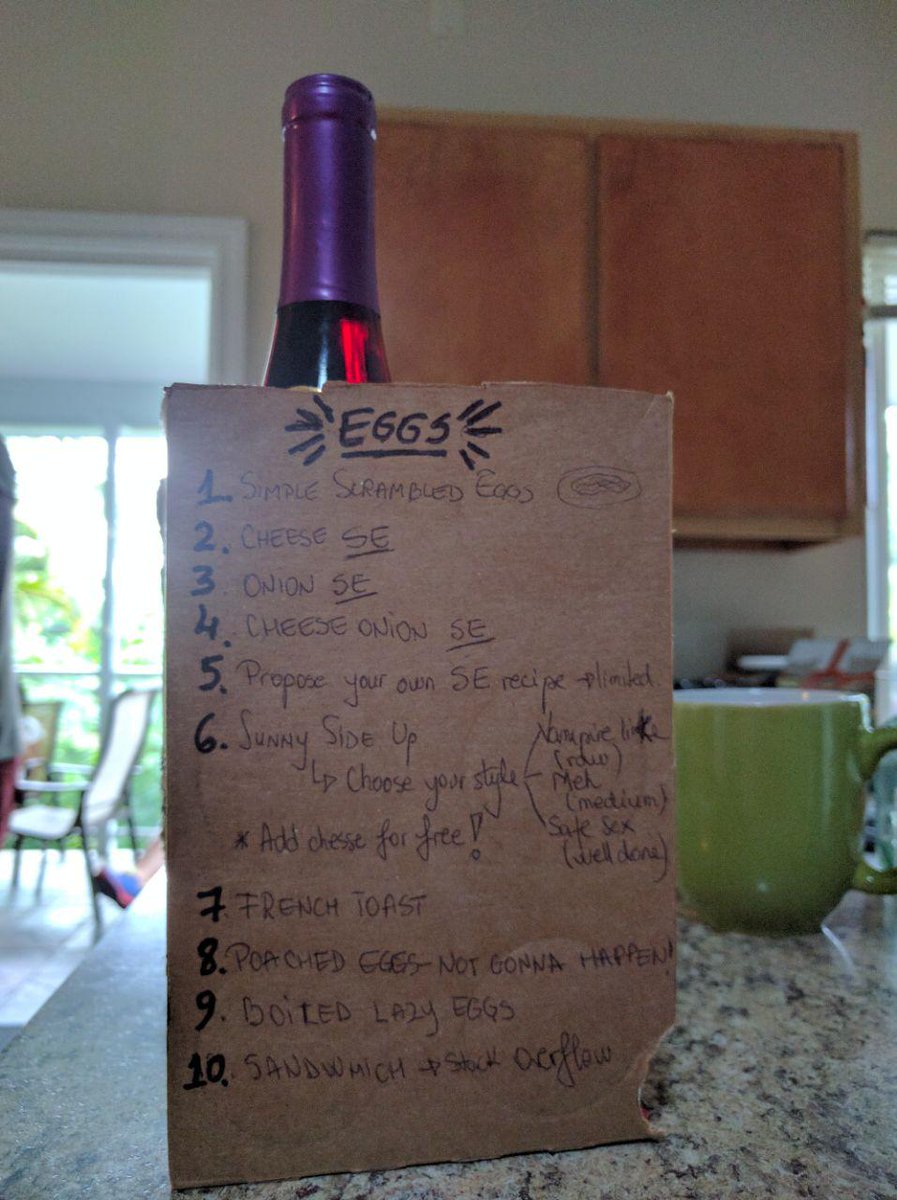 EGGS
1. SIMPLE SCRAMBLED EGGS
2. CHEESE SE
3. ONION SE
4. CHEESE ONION SE
5. Propose your own SE recipe → limited.
6. SUNNY SIDE UP
↳ Choose your style
Vampire like
(raw)
Meh
(medium)
Safe sex
(well done)
* Add chesse for free!
7. FRENCH TOAST
8. POACHED EGGS NOT GONNA HAPPEN!
9. BOILED LAZY EGGS
10. SANDWMICH → Stack overflow